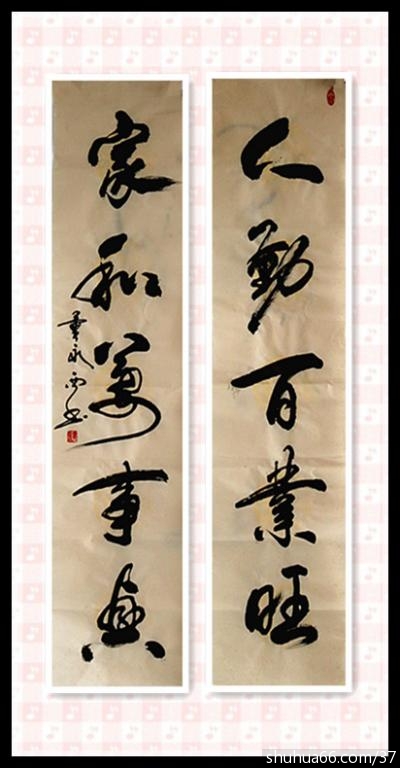 人勤百業旺
家和萬事興
shuhua66.com/37